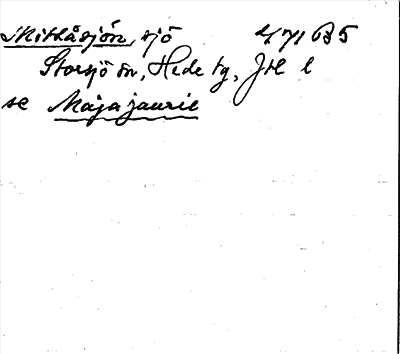 Mittåsjön, sjö
Storsjö sn, Hede tg, Jtl l
se Majajaurie